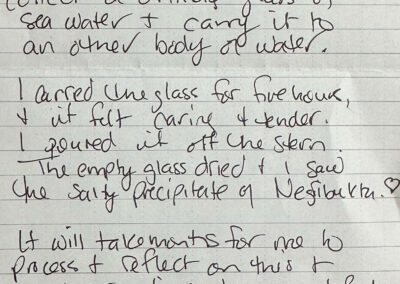 a drinking glass of
sea water + carry it to
an other body of water.
I carred the glass for five hours,
+ it felt caring + tender.
I poured it off the stern.
The empty glass dried + I saw
the salty precipitate of
It will take months for me to
process + reflect on this +